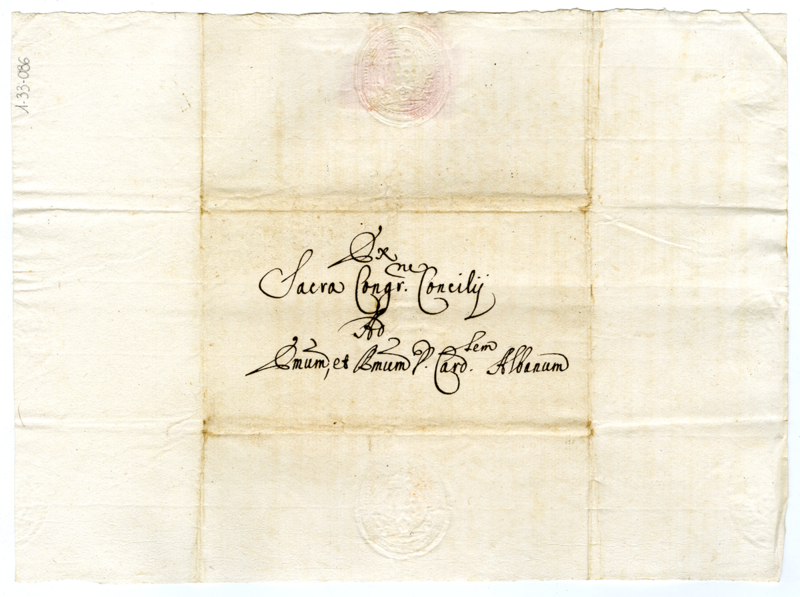 1-33-086
Ex
Sacra Congr.ne Concilij
Ad
Emum, et Rmum D. Card.lem Albanum